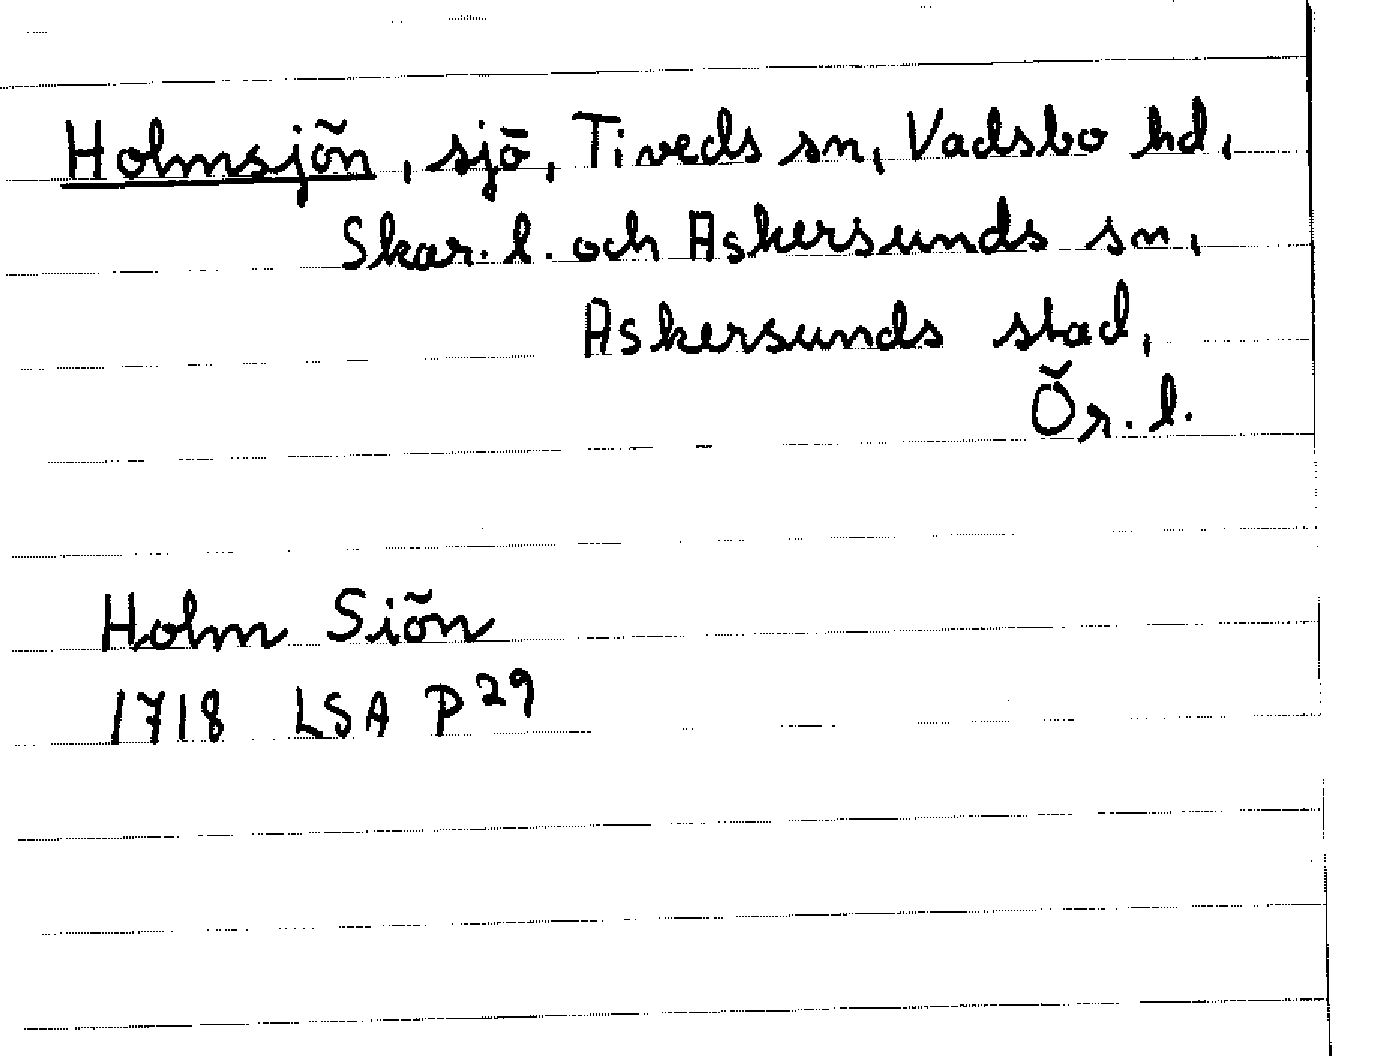 Holmsjön, sjö, Tiveds sn, Vadsbo hd,
Skar. l. och Askersunds sn,
Askersunds stad,
Ör. l.
Holm Siön
1718 LSA P 29